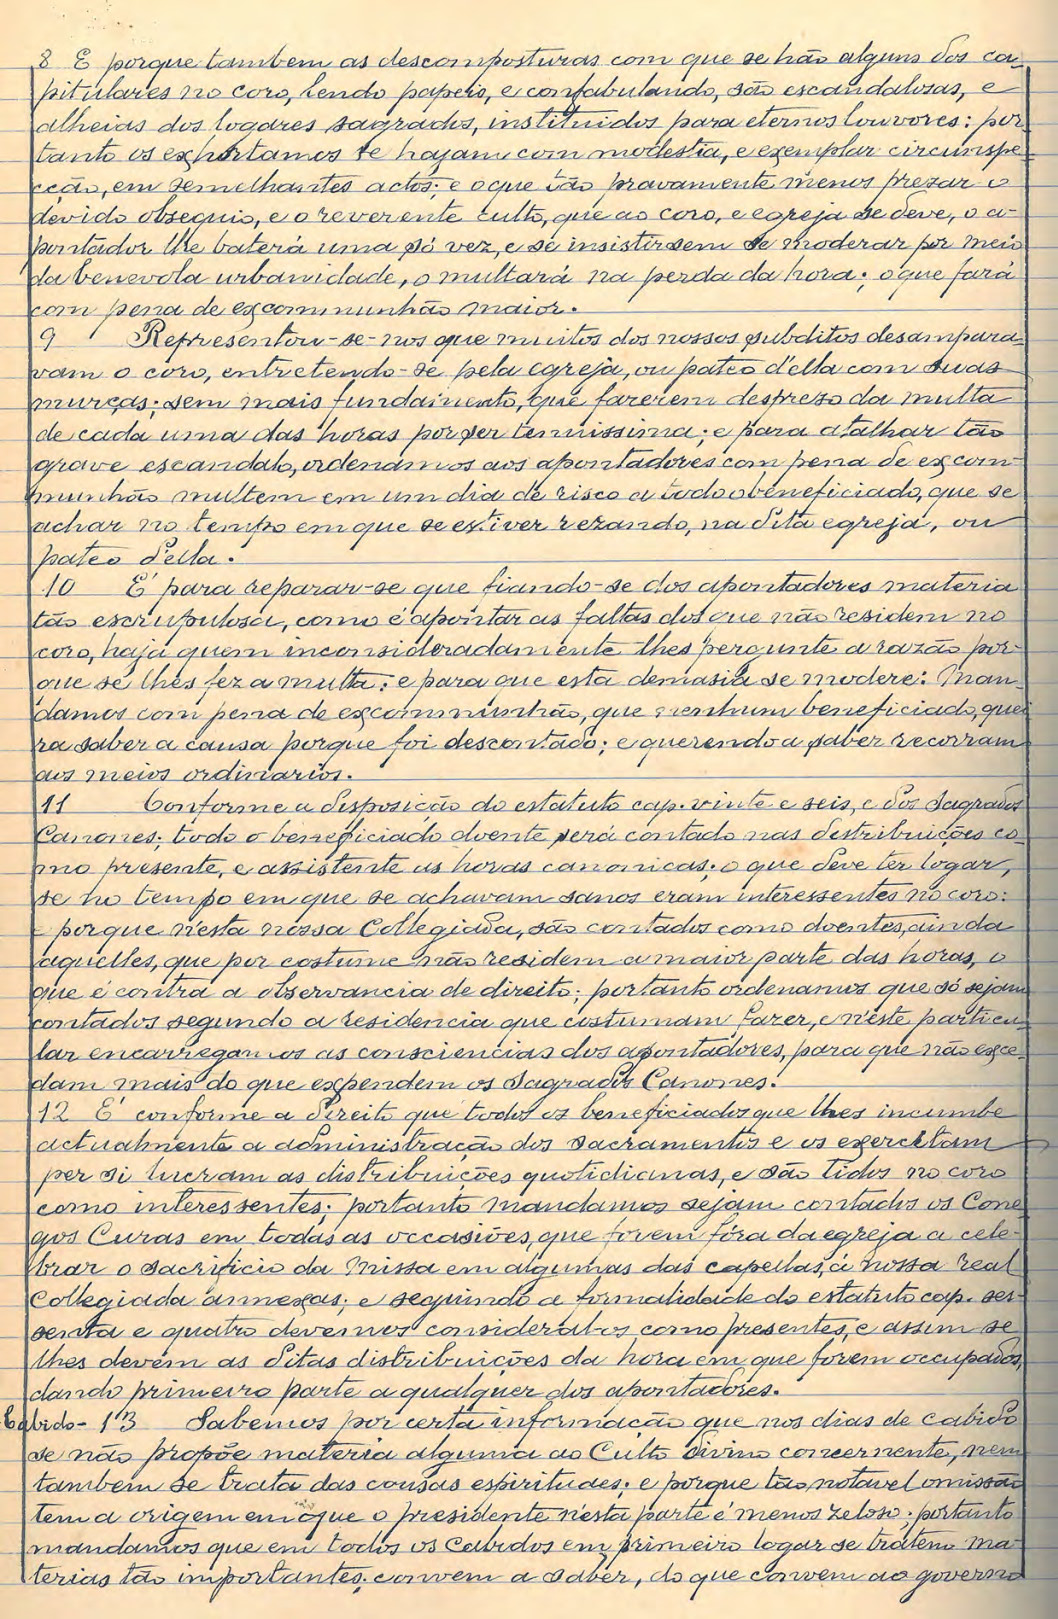 8 E porque tambem as descomposturas com que se hão alguns dos ca-
pitulares no coro, lendo papeis, e confabulando, são escandalosas, e
alheias dos logares sagrados, instituidos para eternos louvores: por
tanto os exhortamos se hajam com modestia, e exemplar circunspe-
cção, em semelhantes actos; e o que tão pravamente menos prezar o
devido obsequio, e o reverente culto, que ao coro, e egreja se deve, o a-
pontador lhe baterá uma só vez, e se insistir sem se moderar por meio
da benevola urbanidade, o multará na perda da hora; o que fará
com pena de excommunhão maior.
9 Representou-se-nos que muitos dos nossos subditos desampara-
vam o coro, entretendo-se pela egreja, ou pateo d'ella com suas
murças; sem mais fundamento, que fazerem despreso da multa
de cada uma das horas por ser tenuissima; e para atalhar tão
grave escandalo, ordenamos aos apontadores com pena de excom-
munhão multem em um dia de risco a todo o beneficiado, que se
achar no tempo em que se estiver rezando, na dita egreja, ou
pateo d'ella.
10 É para reparar-se que fiando-se dos apontadores materia
tão escrupulosa, como é apontar as faltas dos que não residem no
coro, haja quem inconsideradamente lhes pergunte a razão por-
que se lhes fez a multa; e para que esta demasia se modere: Man-
damos com pena de excommunhão, que nenhum beneficiado, quei
ra saber a causa porque foi descontado; e querendo a saber recorram
aos meios ordinarios.
11 Conforme a disposição do estatuto cap. vinte e seis, e dos Sagrados
Canones; todo o beneficiado doente será contado nas distribuições co
mo presente, e assistente as horas canonicas; o que deve ter logar,
se no tempo em que se achavam sanos eram interessentes no coro:
e porque n'esta nossa Collegiada, são contados como doentes, ainda
aquelles, que por costume não residem a maior parte das horas, o
que é contra a observancia de direito; portanto ordenamos que só sejam
contados segundo a residencia que costumam fazer, e n'este particu-
lar encarregamos as consciencias dos apontadores, para que não exce-
dam mais do que expendem os Sagrados Canones.
12 É conforme a direito que todos os beneficiados que lhes incumbe
actualmente a administração dos sacramentos e os exercitam
per si lucram as distribuições quotidianas, e são tidos no coro
como interessentes; portanto mandamos sejam contados os Cone
gos Curas em todas as occasiões, que forem fóra da egreja a cele-
brar o sacrificio da Missa em algumas das capellas, á nossa real
Collegiada annexas; e seguindo a formalidade do estatuto cap. ses-
senta e quatro devemos consideral-os como presentes, e assim se
lhes devem as ditas distribuições da hora em que forem occupados,
dando primeiro parte a qualquer dos apontadores.
Cabido - 13 Sabemos por certa informação que nos dias de cabido
se não propõe materia alguma ao Culto divino concernente, nem
tambem se trata das cousas espirituaes; e porque tão notavel omissão
tem a origem em que o presidente n'esta parte é menos zeloso; portanto
mandamos que em todos os Cabidos em primeiro logar se tratem ma-
terias tão importantes; convem a saber, do que convem ao governo